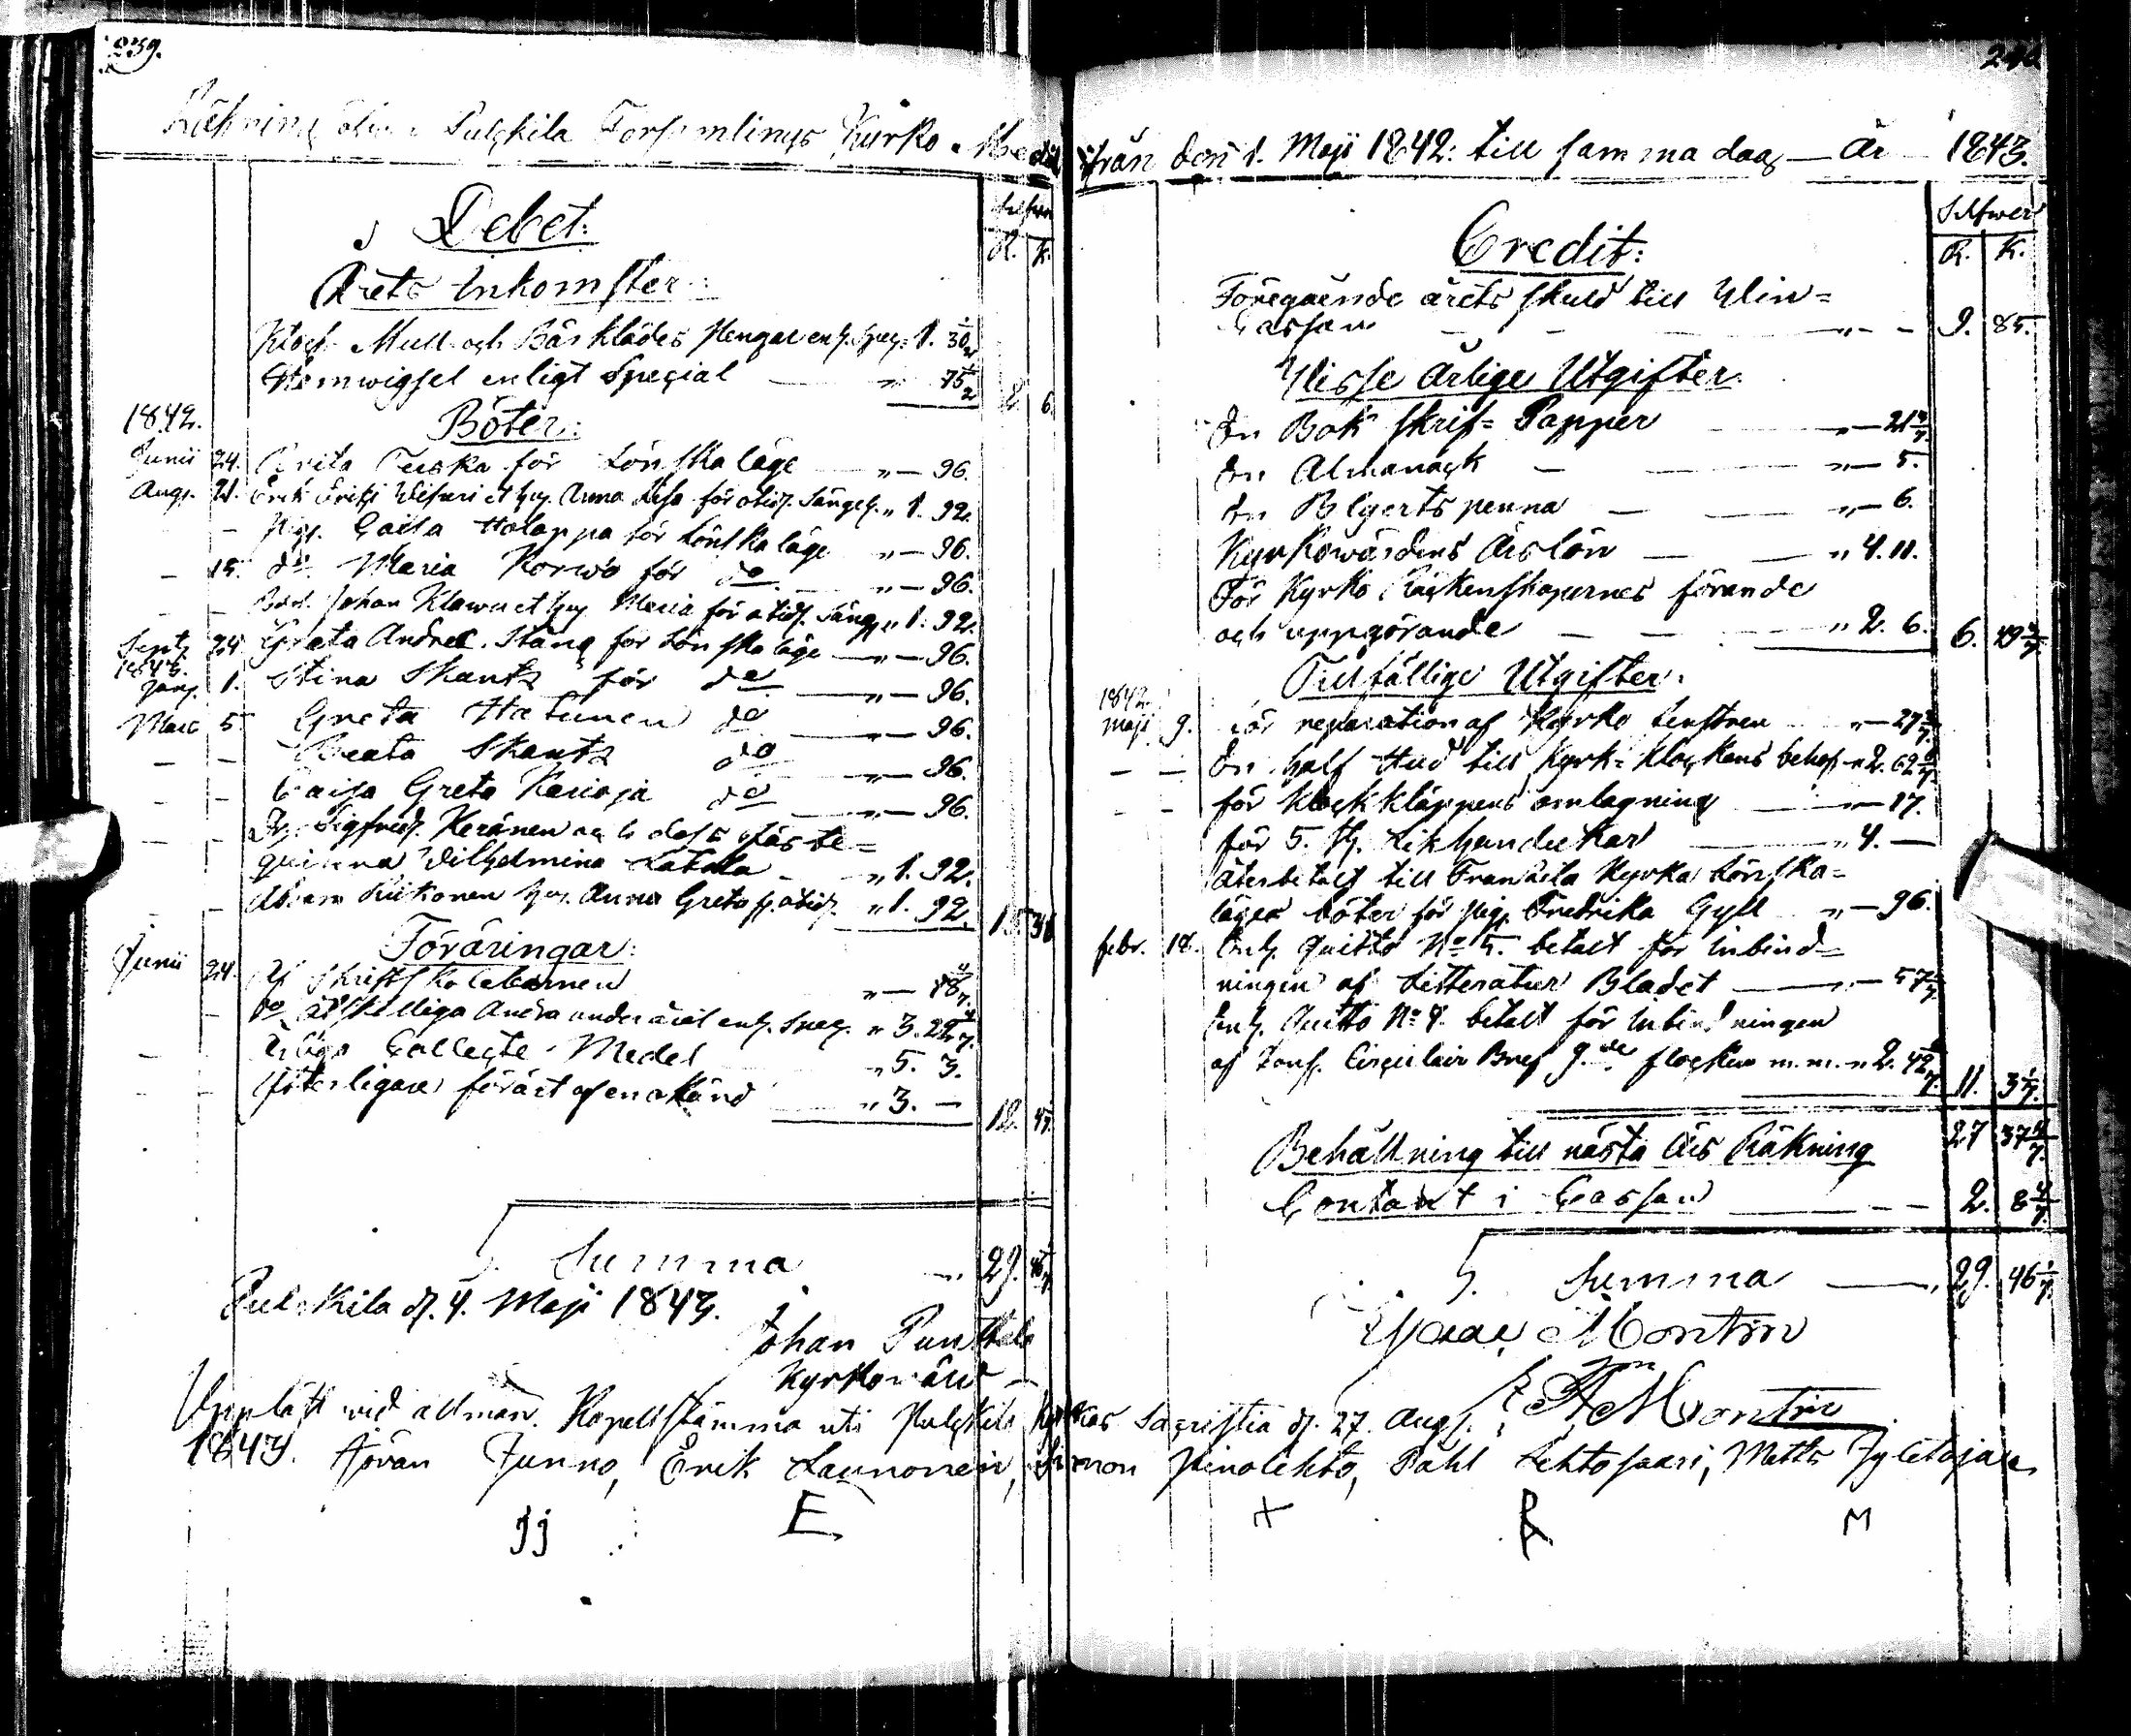 239.
Räkning öfver Pulckila Församlings Kyrko Medel
Silfver
Debet:
R. K.
Årets Inkomster:
Klock Mull och Bårklädes Pengar enl. Spec. 1. 30 1/2
Stamwigsel enligt Special — „ 75 1/2 2. 6.
1842. Böter:
Junii 24. Brita Turska för Lönskaläge „ — 96.
Aug. 21. Erik Eriks: et hu. Anna Lisa för otid. Sängel. „ 1. 92.
— Pig. Caisa Holappa för Lönskaläge „ — 96.
— 15. do Maria Korwo för do „ — 96.
— — Johan et hu Maria för otid. Säng. „ 1. 92.
Sept. 24. Greta Andrec. Stäng för Lönskaläge — „ — 96.
1843.
Janu. 1. Stina Skantz för do — „ — 96.
Mars 5. Greta Hatunen do — „ — 96.
— — Beata Skantz do — „ — 96.
— — Caisa Greta Kariaja do — „ — 96.
— — Dr. Sigfrid Keränen och dess fäste=
quinna Wilhelmina Latola — „ 1. 92.
— — Riikonen hu. Anna Greta f. otid. „ 1. 92. 15. 36
Föräringar:
Junii 24. Af Skriftskolebarnen „ — 18 4/7.
— do åtskilliga Andra under året enl. Spec. „ 3. 22 4/7.
— Collecte-Medel „ 5. 3.
— — Ytterligare förärt af en okänd — „ 3. — 12. 4/7.
S. Summa „ 29. 46 1/7.
Pulckila d. 4. Maji 1843.
Johan
Kyrkowärd
240
från den 1. Maji 1842: till samma dag — År — 1843.
Silfwer
Credit:
R. K.
Föregående årets skuld till Win=
Cassan — — — „ — 9. 85.
Wisse Årlige Utgifter:
En Bok Skrif=Papper — „ — 21 3/7.
En Almanack — — „ — 5.
En Blyertspenna — — „ — 6.
Kyrkowärdens Årslön — — „ 4. 11.
För Kyrko Räckenskapernes förande
och uppgörande — — — „ 2. 6. 6. 49 3/7
Tillfällige Utgifter:
1842.
Maji 9. För reparation af Kyrko fenstren „ — 27 3/7.
— — En half Hud till Kyrk=Klockans behof „ 2. 62 6/7.
— — för Klockkläppens omlagning — „ — 17.
för 5. st. Likhandukar — „ 4. —
återbetalt till Frantzila Kyrka Lönska=
läges böter för pig. Fredrika Gyll „ — 96.
febr. 18. Enl. Quitto No 5. betalt för inbind=
ningen af Litteratur Bladet — „ — 57 1/7
Enl. Quitto No 4. betalt för inbindningen
af Cons. Circulair Bref 9.de flocken m.m. „ 2. 42 6/7. 11. 3 1/7.
27 37 4/7.
Behållning till nästa Års Räkning
Contant i Cassan — — 2. 8 4/7.
S. Summa — „ 29. 46 1/7.
Isaac Montin
Montin
Uppläst wid allmän. Kapellstämma uti Pulckila Kyrkas Sacristia d. 27. Aug.
1843. Göran Junno, Erik Launonen, Simon Pinolehto, Påhl Lehtosaari, Matts
JJ E + P M